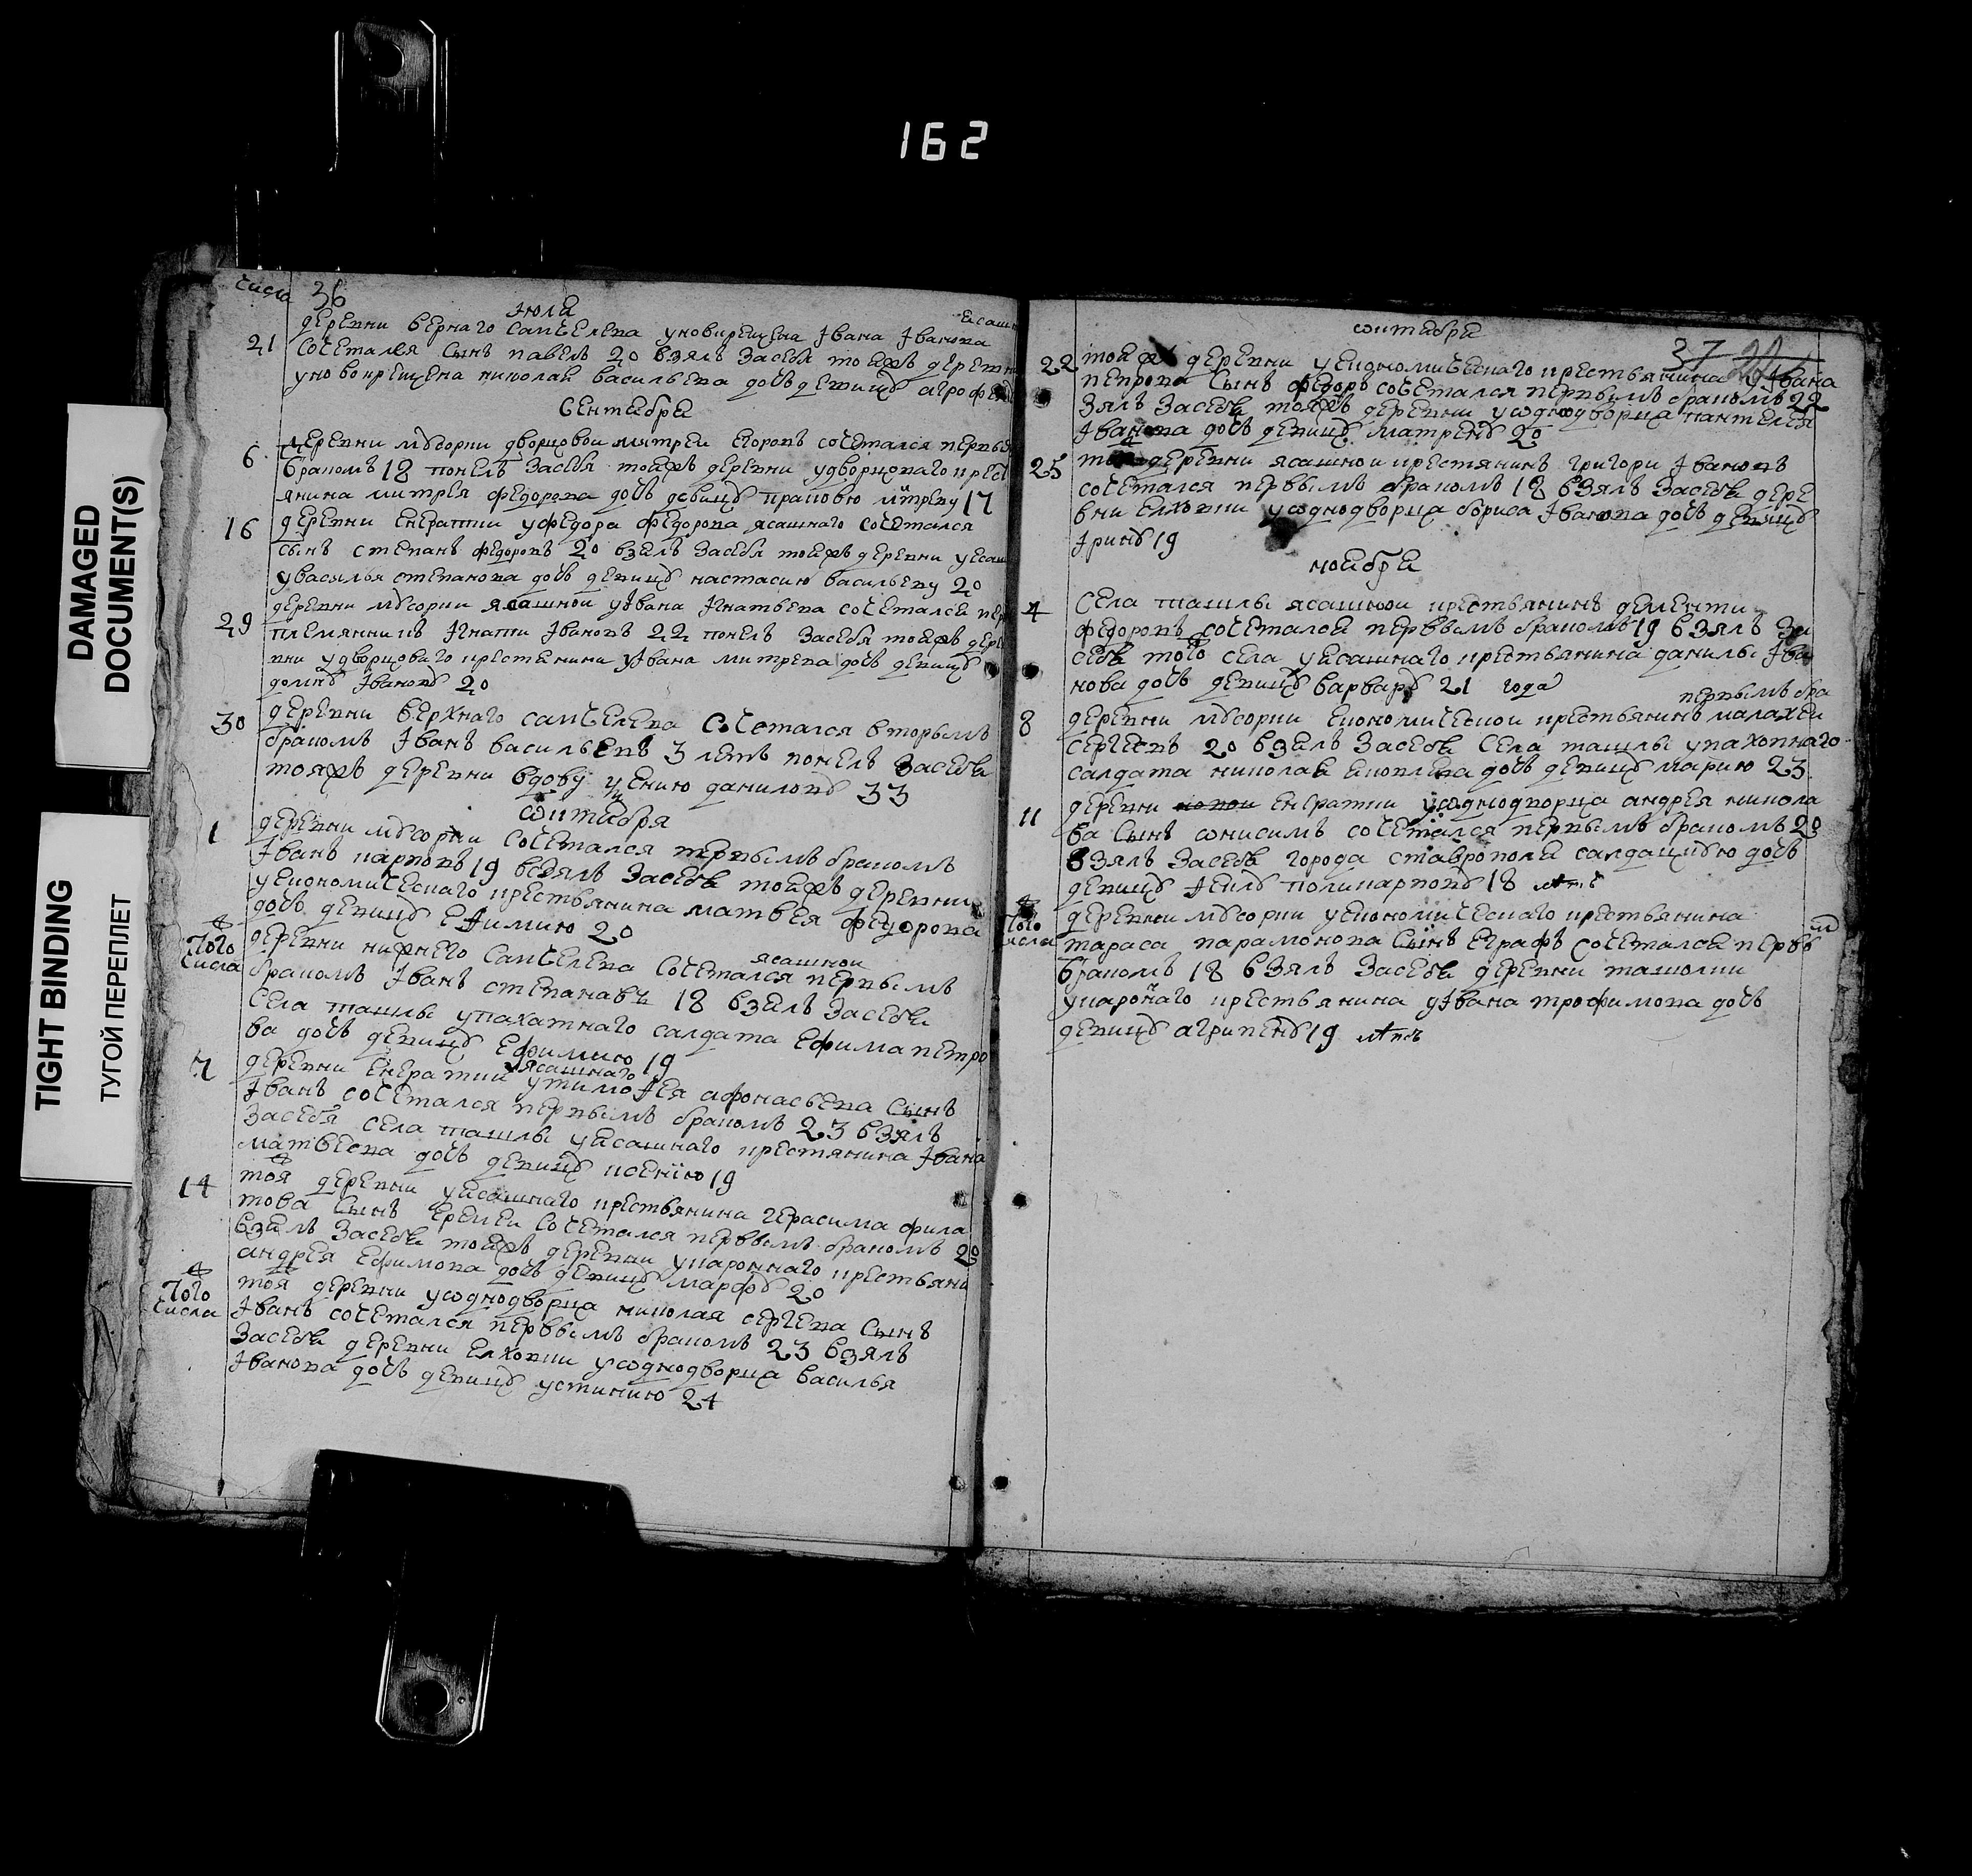 162
DAMAGED
DOCUMENT(S)
TIGHT BINDING
ТУГОЙ ПЕРЕПЛЕТ
числа 36
июля
21 деревни вернаго санчелева уновокрещена Iвана Iванова
сочетался сынъ павелъ 20 взялъ засебя тоийжъ деревни
уновокрещена николая васильева дочь девицу
сентября
6 деревни мусорки дворцовой митрей егоровъ сочетался первы
бракомъ 18 понелъ засебя тоейжъ деревни удворцоваго крест
янина митрея федорова дочь девицу праковю митреву 17
16 деревни енератки уфедора федорова ясашнаго сочетался
сынъ степанъ федоровъ 20 взелъ засебя тоейжъ деревни
увасилья степанова дочь девицу настасию васильеву 20
29 деревни мусорки ясашной уIвана Iгнатьева сочетался
племянникъ Iгнати Iвановъ 22 понелъ засебя тоейжъ дере
вни удворцоваго крестенина уIвана митрева дочь девицу
домну Iванову 20
30 деревни верхнаго санчелева сочетался вторымъ
бракомъ Iванъ васильевъ 3 летъ понелъ засебя
тояжъ деревни вдову данилову 33
октября
1 деревни мусорки сочетался первымъ бракомъ
Iванъ карповъ 19 взялъ засебя тоейжъ деревни
уекономическаго крестьянина матвея федорова
дочь девицу ефимию 20
того
числа деревни нижнего санчелева ясашной сочетался первымъ
бракомъ Iванъ степанавъ 18 взелъ засебя
села ташлы упахатнаго салдата ефима петро
ва дочь девицу ефимию 19
7 деревни енератки уясашнаго утимофея афонасьева сынъ
Iванъ сочетался первымъ бракомъ 23 взялъ
засебя села ташлы уясашнаго крестянина Iвана
матвеева дочь девицу ксению 19
14 тоя деревни уясашнаго крестьянина герасима фила
това сынъ еремеи сочетался первымъ бракомъ 20
взелъ засебя тоейжъ деревни укаронного крестьяни
андрея ефимова дочь девицу марфу 20
того
числа тоя деревни уоднодворца николая сергева сынъ
Iванъ сочетался первымъ бракомъ 23 взялъ
засебя деревни елховки уоднодворца василья
Iванова дочь девицу устинию 24
октября
37
22 тоейж деревни уекономическаго крестьянина Iвана
петрова сынъ федоръ сочетался первымъ бракомъ 22
взялъ засебя тояжъ деревни уоднодворца пантелея
Iванова дочь девицу матрену 20
25 деревни ясашнои крестянинъ григори Iвановъ
сочетался первымъ бракомъ 18 взялъ засебя дере
вни елховки уоднодворца бориса Iванова дочь девицу
Iрину 19
ноября
4 села ташлы ясашнои крестьянинъ дементи
федоровъ сочетался первымъ бракомъ 19 взялъ за
себя того села уясашнаго крестьянина данилы Iва
нова дочь девицу варвару 21 года
первымъ бра
8 деревни мусорки економическои крестьянинъ малахеи
сергеевъ 20 взялъ засебя села ташлы упахотнаго
салдата николая дочь девицу марию 23
11 деревни енератки уоднодворца андрея никола
ва сынъ онисимъ сочетался первымъ бракомъ 20
взялъ засебя города ставрополя салдацкую дочь
девицу поликарпову 18 летъ
того
числа деревни мусорки уекономическаго крестьянина
тараса парамонова сынъ еграфъ сочетался первы
бракомъ 18 взялъ засебя деревни ташолки
укароннаго крестьянина уIвана трофимова дочь
девицу агрипену 19 летъ